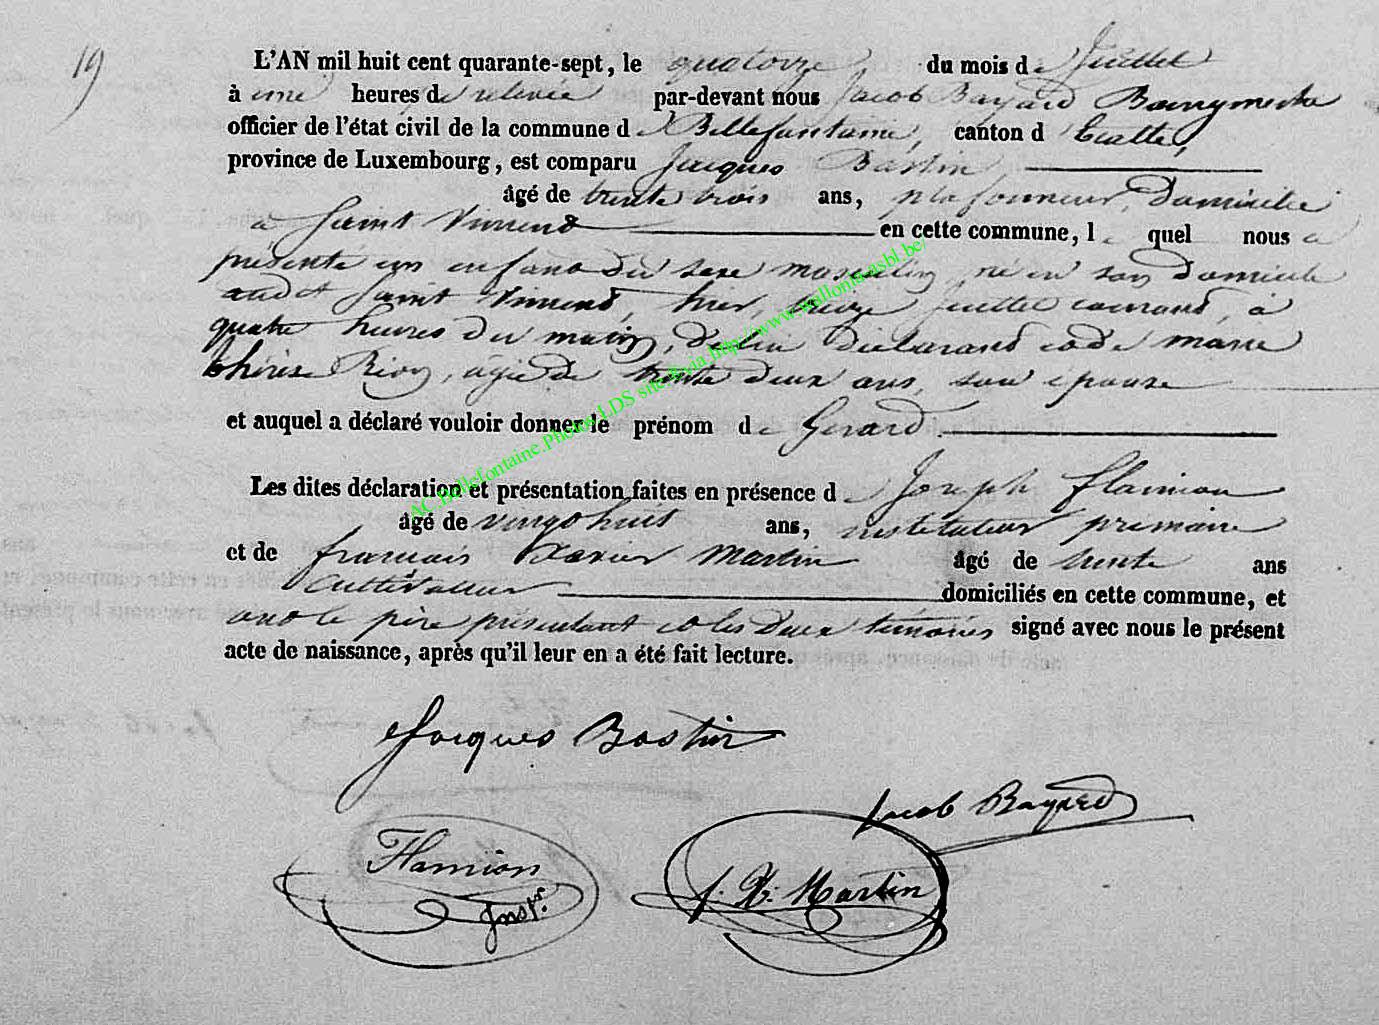 19
L'AN mil huit cent quarante-sept, le quatorze du mois de Juillet
à une heures de relevée par-devant nous Jacob Bayard Bourgmestre
officier de l'état civil de la commune de Bellefontaine, canton d'Etalle,
province de Luxembourg, est comparu Jacques Bastin
âgé de trente trois ans, plafonneur, domicilié
à Saint Vincent en cette commune, lequel nous a
présenté un enfant du sexe masculin, né en son domicile
audit Saint Vincent, hier, treize Juillet courant, à
quatre heures du matin, de lui déclarant et de marie
thérèse Rion, agée de trente deux ans, son épouse
et auquel a déclaré vouloir donner le prénom de Gérard.
Les dites déclaration et présentation faites en présence de Joseph flamion
âgé de vingt huit ans, instituteur primaire
et de francois Xavier Martin âgé de trente ans
Cultivateur domiciliés en cette commune, et
ont le père présentant et les deux témoins signé avec nous le présent
acte de naissance, après qu'il leur en a été fait lecture.
Jacques Bastin
Jacob Bayard
Flamion
Instr.
f. X. Martin
AC.Bellefontaine.Photos LDS site via http://www.wallonia.asbl.be/